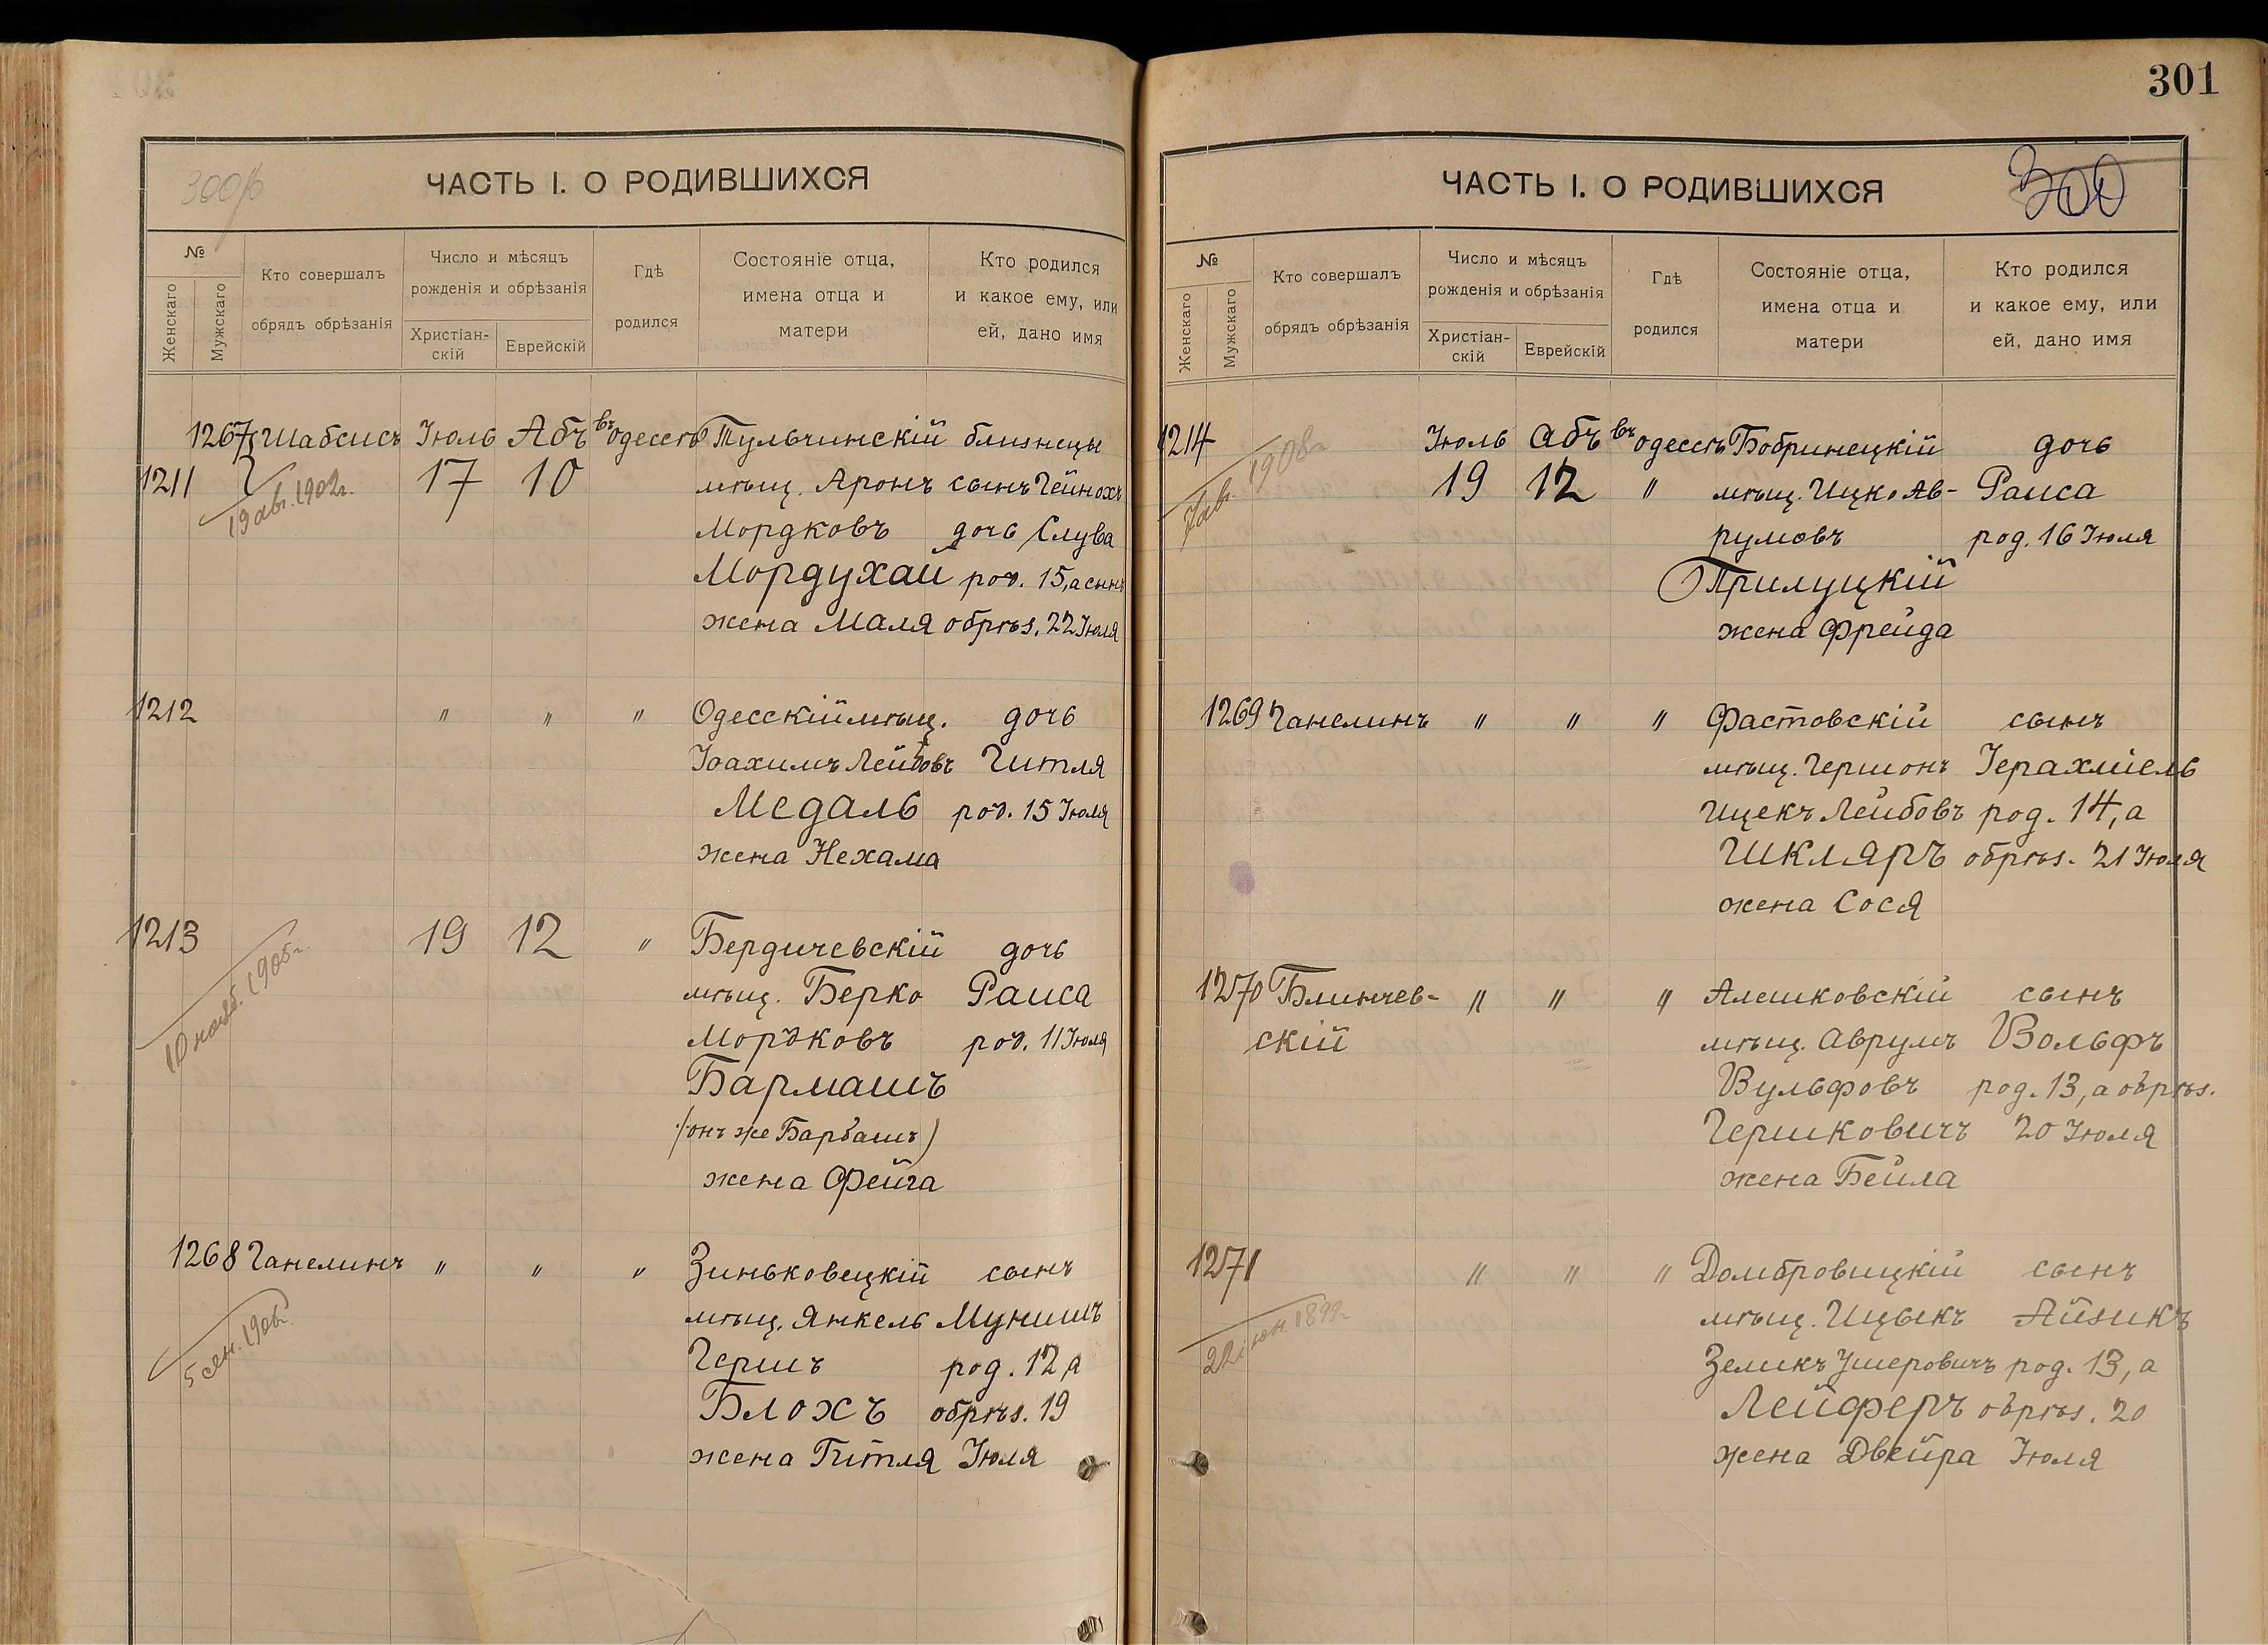 301
300/б
ЧАСТЬ I. О РОДИВШИХСЯ
№
Женскаго
Мужскаго
Кто совершалъ
обрядъ обрѣзанія
Число и мѣсяцъ
рожденія и обрѣзанія
Христіан-
скій
Еврейскій
Гдѣ
родился
Состояніе отца,
имена отца и
матери
Кто родился
и какое ему, или
ей, дано имя
1267 Шабсисъ Іюль Абъ въ Одессѣ Тульчинскій близнецы
1211 17 10 мѣщ. Аронъ сынъ Гейнохъ
19 авг. 1902г.
Мордковъ дочь Слува
Мордухай род. 15, а сынъ
жена Маля обрѣз. 22 Іюля
1212 " " " Одесскій мѣщ. дочь
Іоахимъ Лейбовъ Гитля
Медаль род. 15 Іюля
жена Нехама
1213 19 12 " Бердичевскій дочь
мѣщ. Берко Раиса
10 нояб. 1905г.
Мордковъ род. 11 Іюля
Бармашъ
(онъ же Барбашъ)
жена Фейга
1268 Ганелинъ " " " Зиньковецкій сынъ
мѣщ. Янкель Мунишъ
5 сен. 1906г.
Гершъ род. 12, а
Блохъ обрѣз. 19
жена Гитля Іюля
ЧАСТЬ I. О РОДИВШИХСЯ
300
№
Женскаго
Мужскаго
Кто совершалъ
обрядъ обрѣзанія
Число и мѣсяцъ
рожденія и обрѣзанія
Христіан-
скій
Еврейскій
Гдѣ
родился
Состояніе отца,
имена отца и
матери
Кто родился
и какое ему, или
ей, дано имя
1214 Іюль Абъ въ Одессѣ Бобринецкій дочь
19 12 " мѣщ. Ицко Ав- Раиса
1908г.
румовъ род. 16 Іюля
Прилуцкій
жена Фрейда
1269 Ганелинъ " " " Фастовскій сынъ
мѣщ. Гершонъ Іерахміель
Ицекъ Лейбовъ род. 14, а
Шкляръ обрѣз. 21 Іюля
жена Сося
1270 Блинчев- " " " Алешковскій сынъ
скій мѣщ. Аврумъ Вольфъ
Вульфовъ род. 13, а обрѣз.
Гершковичъ 20 Іюля
жена Бейла
1271 " " " Домбровицкій сынъ
мѣщ. Ицыкъ Айзикъ
22 іюн. 1899г.
Зеликъ Ушеровичъ род. 13, а
Лейферъ обрѣз. 20
жена Двейра Іюля